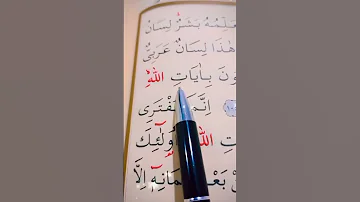 ـعَلِّمُهُ بَشَرٌۜ لِسَانُ
هٰذَا لِسَانٌ عَرَبِيٌّ
ـونَ بِاٰيَاتِ اللّٰهِۙ
اِنَّمَا يَفْتَرِي
ـتِ اللّٰهِۚ وَاُو۬لٰٓئِكَ
ـنْ بَعْـ ـمَانِه۪ٓ اِلَّا